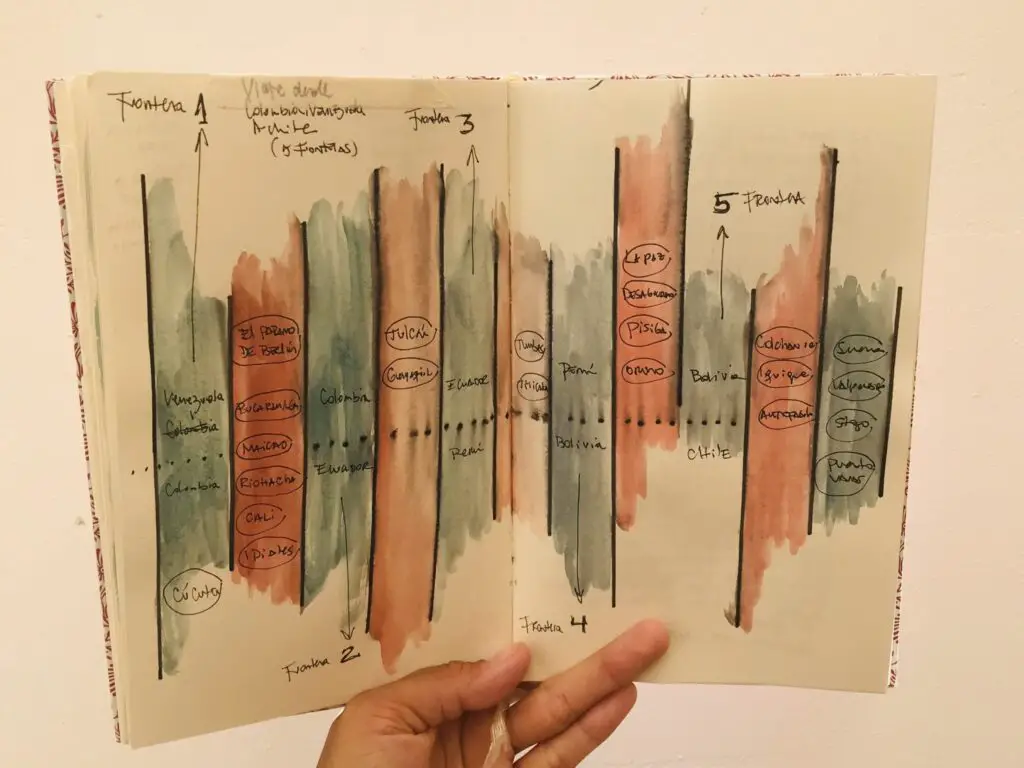 Frontera 1
Viaje desde
Colombia/Venezuela
A chile
(5 Fronteras)
Frontera 3
Venezuela
Colombia
Colombia
Cúcuta
El PÁRAMO
DE BERLÍN
BUCARAMANGA
MAICAO
RIOHACHA
CALI
IPIALES
Colombia
ECUADOR
Frontera 2
TULCÁN
GUAYAQUIL
ECUADOR
Perú
Tumbes
Perú
Bolivia
Frontera 4
LA PAZ
DESAGUADERO
PISIGA
ORURO
5 FRONTERA
Bolivia
CHILE
Colchane
Iquique
ANTOFAGASTA
Valparaíso
Stgo.
PUERTO
VARAS